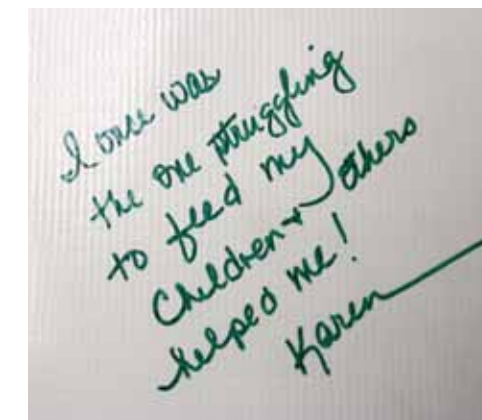 I once was
the one struggling
to feed my
Children + others
helped me!
Karen